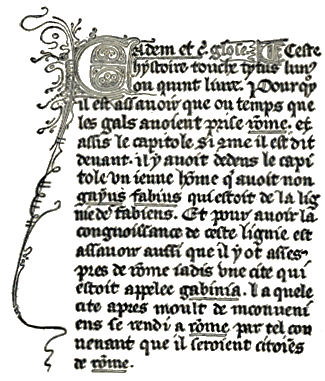 Eadem et c̃ glose. Ceste
hystoire touche tytus liuꝰ
ou quint liure. Pourqͥy
il est assauoir que ou temps que
les gals auoient prise rõme. et
assis le capitole si cõme il est dit
deuant. il y auoit dedens le capi
tole vn ienne hõme qͥ auoit non
gayus fabius qui estoit de la lig
nie de fabiens. Et pour auoir la
congnoissance de ceste lignie est
assauoir aussi que il y ot asses
pres de rõme iadis vne cite qui
estoit appelee gabinia. la quele
cite apres moult de inconueni
ens se rendi a rõme par tel con
uenant que il seroient citoiẽs
de rõme.